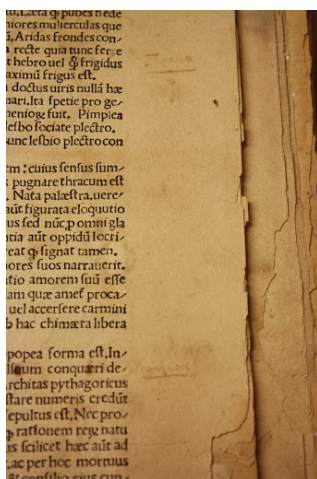 tu. Læta ꝙ pubes hede
niores mulierculas que
ū. Aridas frondes con-
a recte quia tunc fere
t hebro uel ꝙ frigidus
aximū frigus est.
a doctus uiris nullā hæ
nari. Ita spetie pro ge-
heniog fuit. Pimplea
lesbo sociate plectro.
unc lesbio plectro con
em: cuius sensus sum-
pugnare thracum est
. Nata palæstra. uere-
aūt figurata eloquutio
us sed nūc, p omni gla
tia aūt oppidū locri-
eat ꝙ signat tamen.
ores suos narrauerit.
tio amorem suū esse
am quæ amet proca-
uel accersere carmini
b hac chimæra libera
popea forma est. In-
lissum conquæri de-
rchitas pythagoricus
stare numeris credūt
epultus est. Nec pro-
ꝙ rationem rege natu
as scilicet hæc aūt ad
. ac per hoc mortuus
& consilio eius cun-